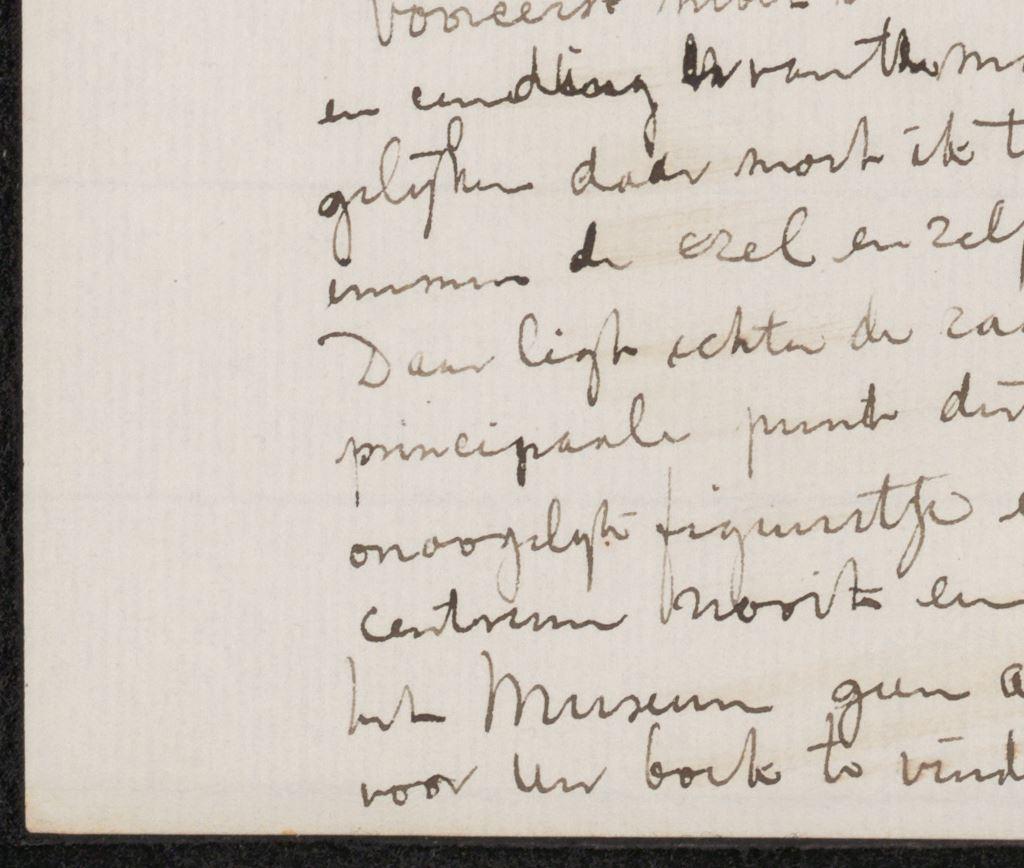 Vooreerst moet
en
gelijken daar moet ik t
immers de ezel en zelf
Daar ligt echter de za
principaale punt dit
onoogelijk figuurtje e
centrum nooit en
het Museum geen a
voor Uw boek te vind